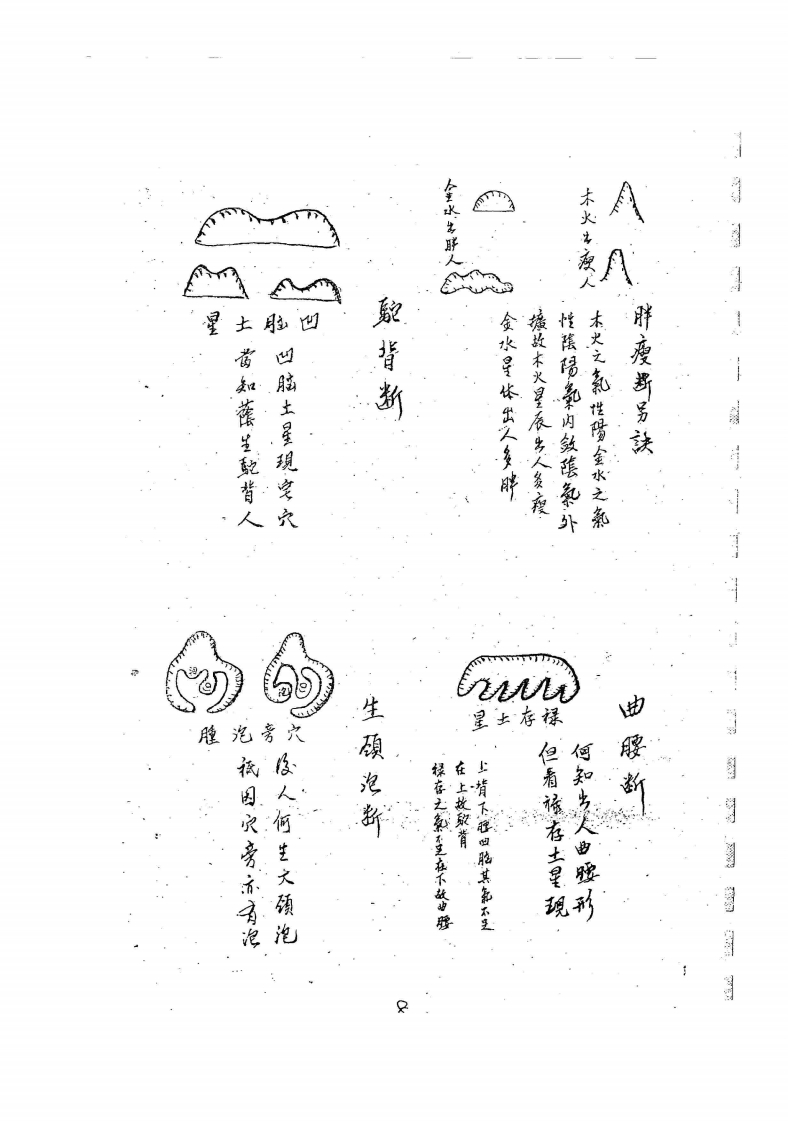 胖瘦断另訣
木火出瘦人
金水出胖人
木火之氣性陽金水之氣
性陰陽氣内斂陰氣外
擴故木火星辰出人多瘦
金水星体出人多胖
駝背断
凹脑土星
凹脑土星現宅穴
苗知蔭生駝背人
曲腰断
禄存土星
何知出人曲腰形
但看禄存土星現
上背下腰凹脑其氣不足
在上故駝背
禄存之氣不足在下故曲腰
生頸泡断
穴旁泡腫
泡
泡
後人何生大頸泡
祇因穴旁亦有泡
8